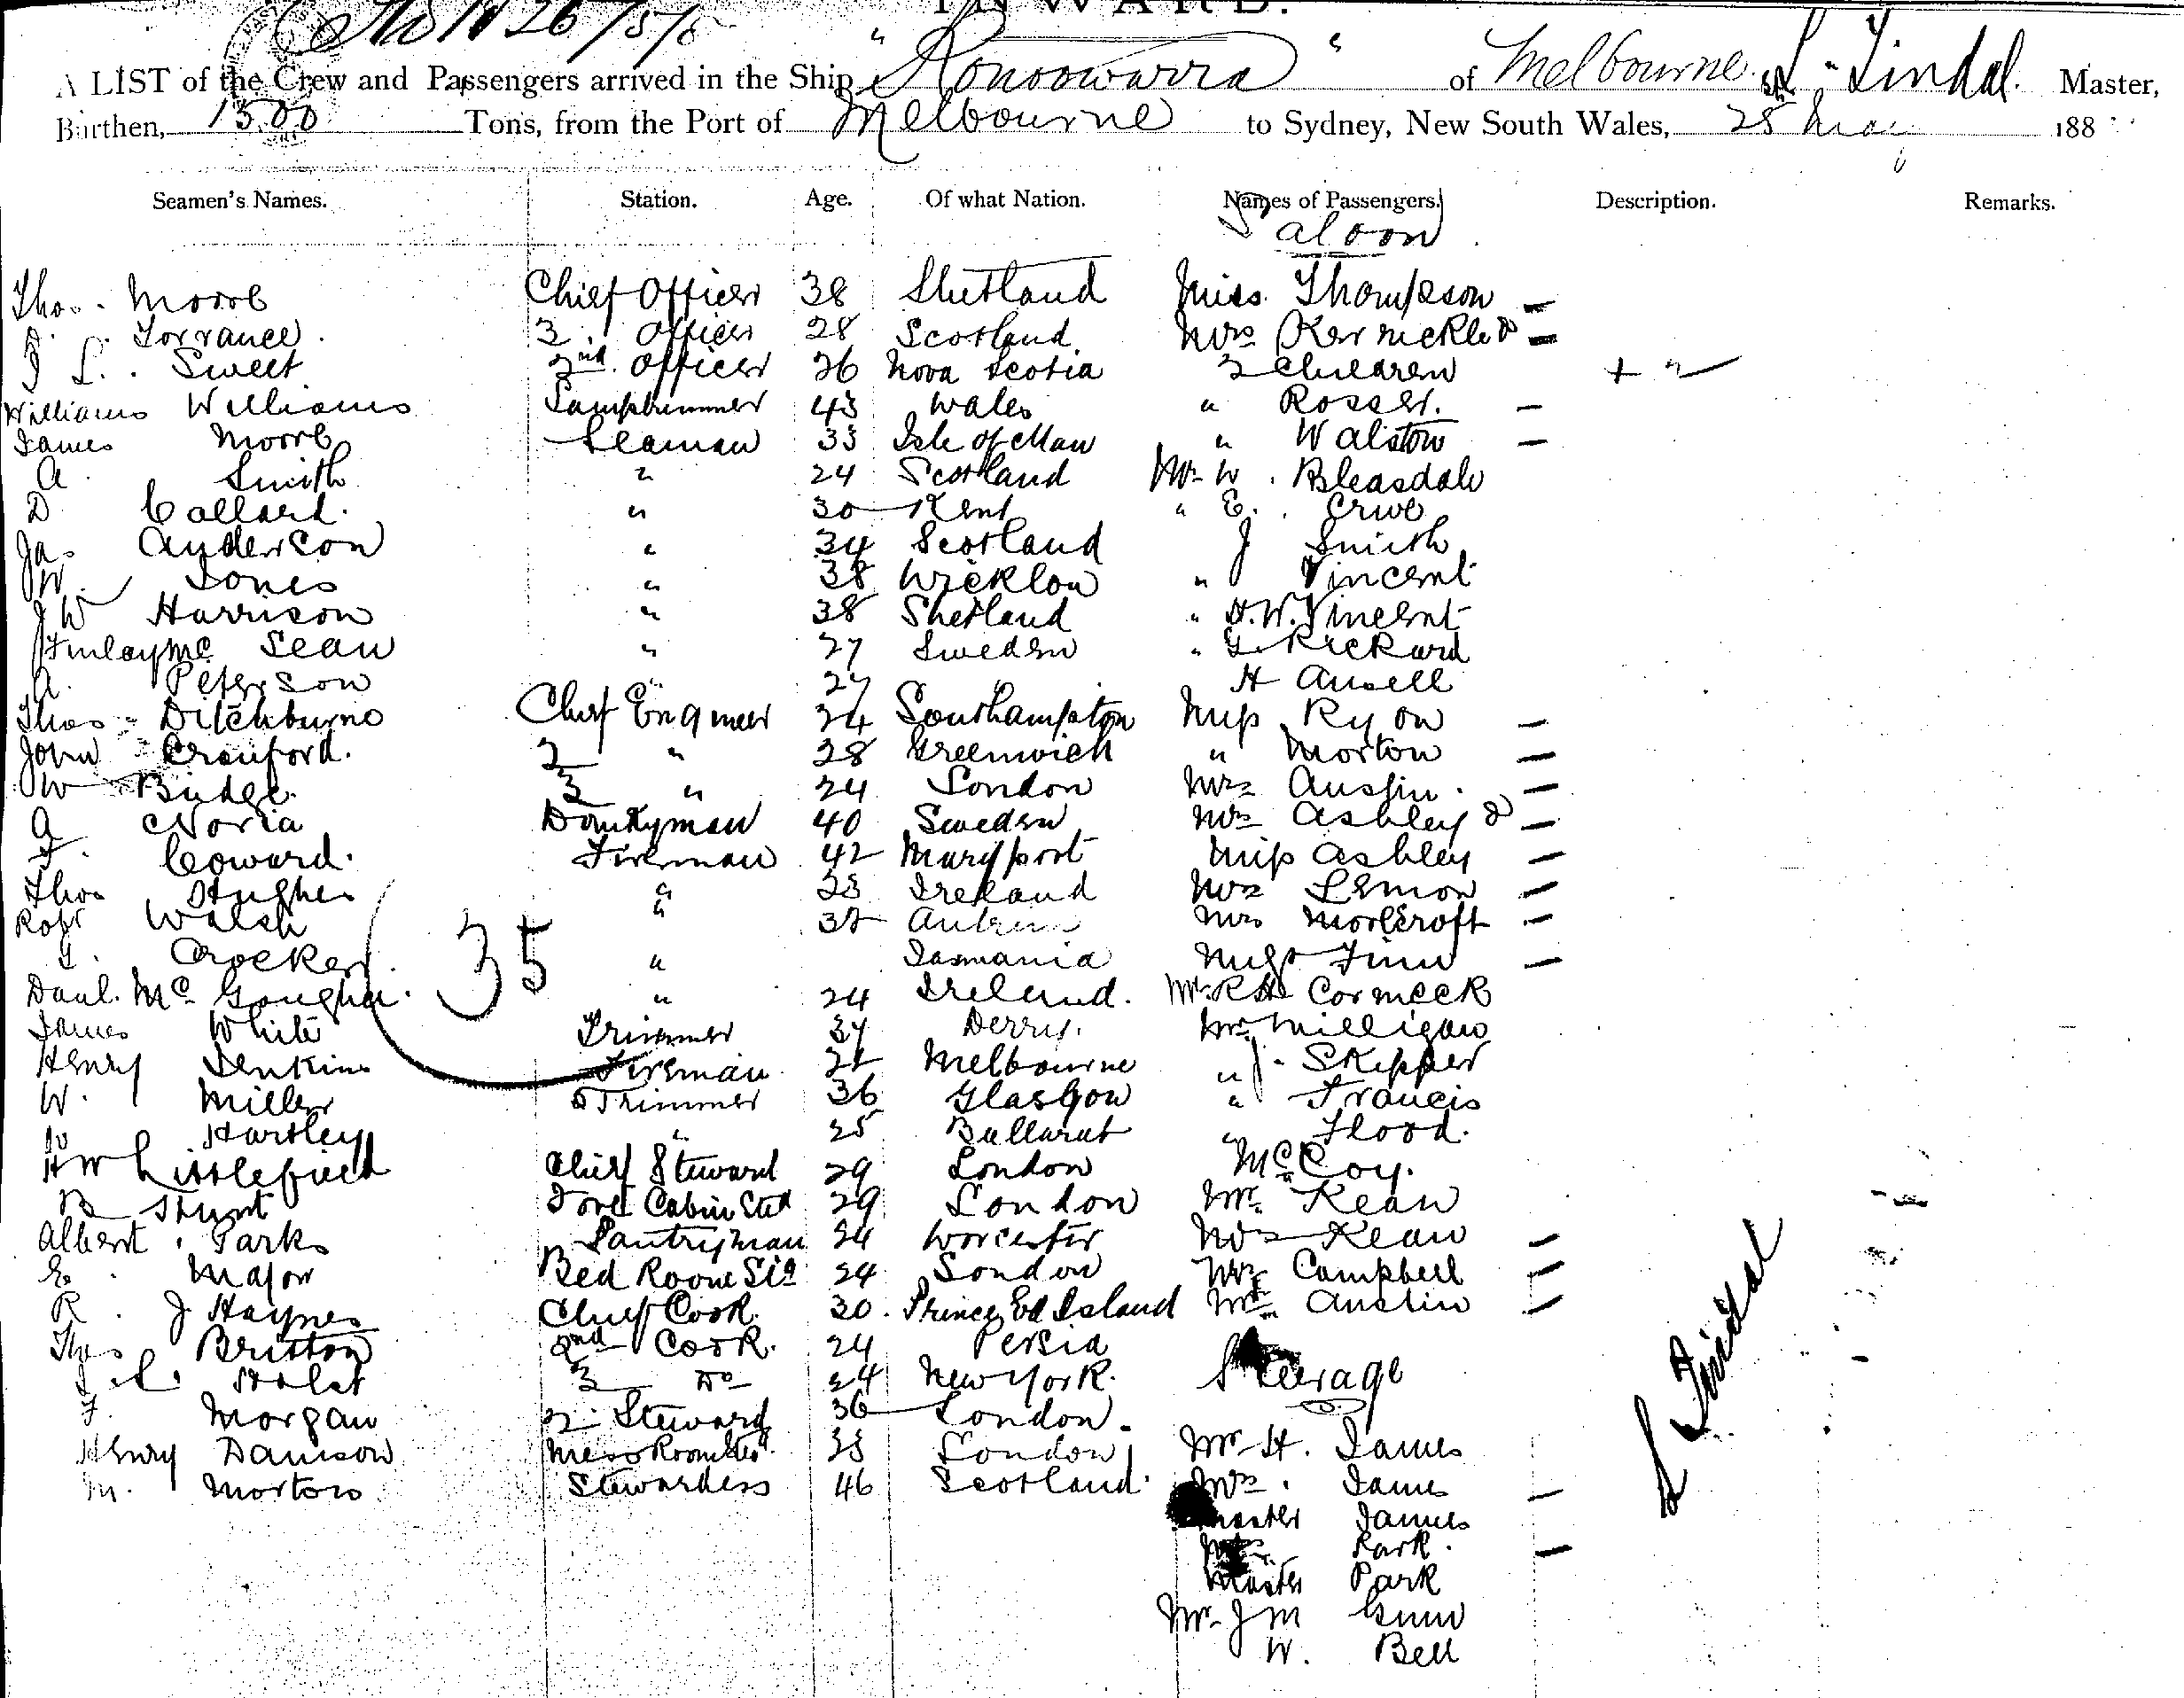 INWARD.
A LIST of the Crew and Passengers arrived in the Ship "Konoowarra" of Melbourne, S. Lindal. Master,
Burthen, 1500 Tons, from the Port of Melbourne to Sydney, New South Wales, 25 May 188
Seamen's Names. Station. Age. Of what Nation. Names of Passengers. Description. Remarks.
Saloon
Thos. Moore Chief Officer 38 Shetland Miss Thompson
Torrance 3 Officer 28 Scotland Mrs &
J L. Sweet 2nd Officer 26 Nova Scotia 2 Children
Williams Williams Lamptrimmer 43 Wales " Rosser.
James Moore Seaman 33 Isle of Man " Walstow
A Smith " 24 Scotland Mr W. Bleasdale
D Collard. " 30 Kent " E.
Jas Anderson " 34 Scotland J Smith
W. Jones " 38 Wicklow " Vincent
J W Harrison " 38 Shetland " H.W. Vincent
Finlay Mc Lean " 27 Sweden " Rickard
A. Peterson " 27 H Ansell
Thos Ditchburne Chief Engineer 34 Southampton Miss Ryon
John Cranford. 2 " 28 Greenwich " Morton
W Budge. 3 " 24 London Mrs Austin.
A Noria Donkyman 40 Sweden Mrs Ashley &
F. Coward. Fireman 42 Maryport Miss Ashley
Thos Hughes " 23 Ireland Mrs Lemon
Robt Walsh " 32 Antrim Mrs Morecroft
Crocker. " Tasmania Finn
Danl. Mc 35 " 24 Ireland. Mr R H Cormeck
James White Trimmer 37 Derry. Mr Milligan
Henry Jenkins Fireman 22 Melbourne " J. Skipper
W. Miller Trimmer 36 Glasgow " Francis
W Hartley " 25 Ballarat " Flood.
H W Littlefield Chief Steward 29 London Mc Coy.
B Hunt Fore Cabin Std 29 London Mr Kean
Albert Parks Pantryman 24 Worcester Mrs Kean
E. Major Bed Room Std 24 London Mrs Campbell
R. J Haynes Chief Cook. 30. Prince Ed Island Austin
Thos Britton 2nd Cook. 24 Persia
3 Do 24 New York. Steerage
F. Morgan 2 Steward 36 London.
Henry Damson Mess Room Std. 33 London Mr H. James
M. Morton Stewardess 46 Scotland. Mrs. James
Master James
Park.
Master Park
Mr J M Gunn
W. Bell
S Lindal